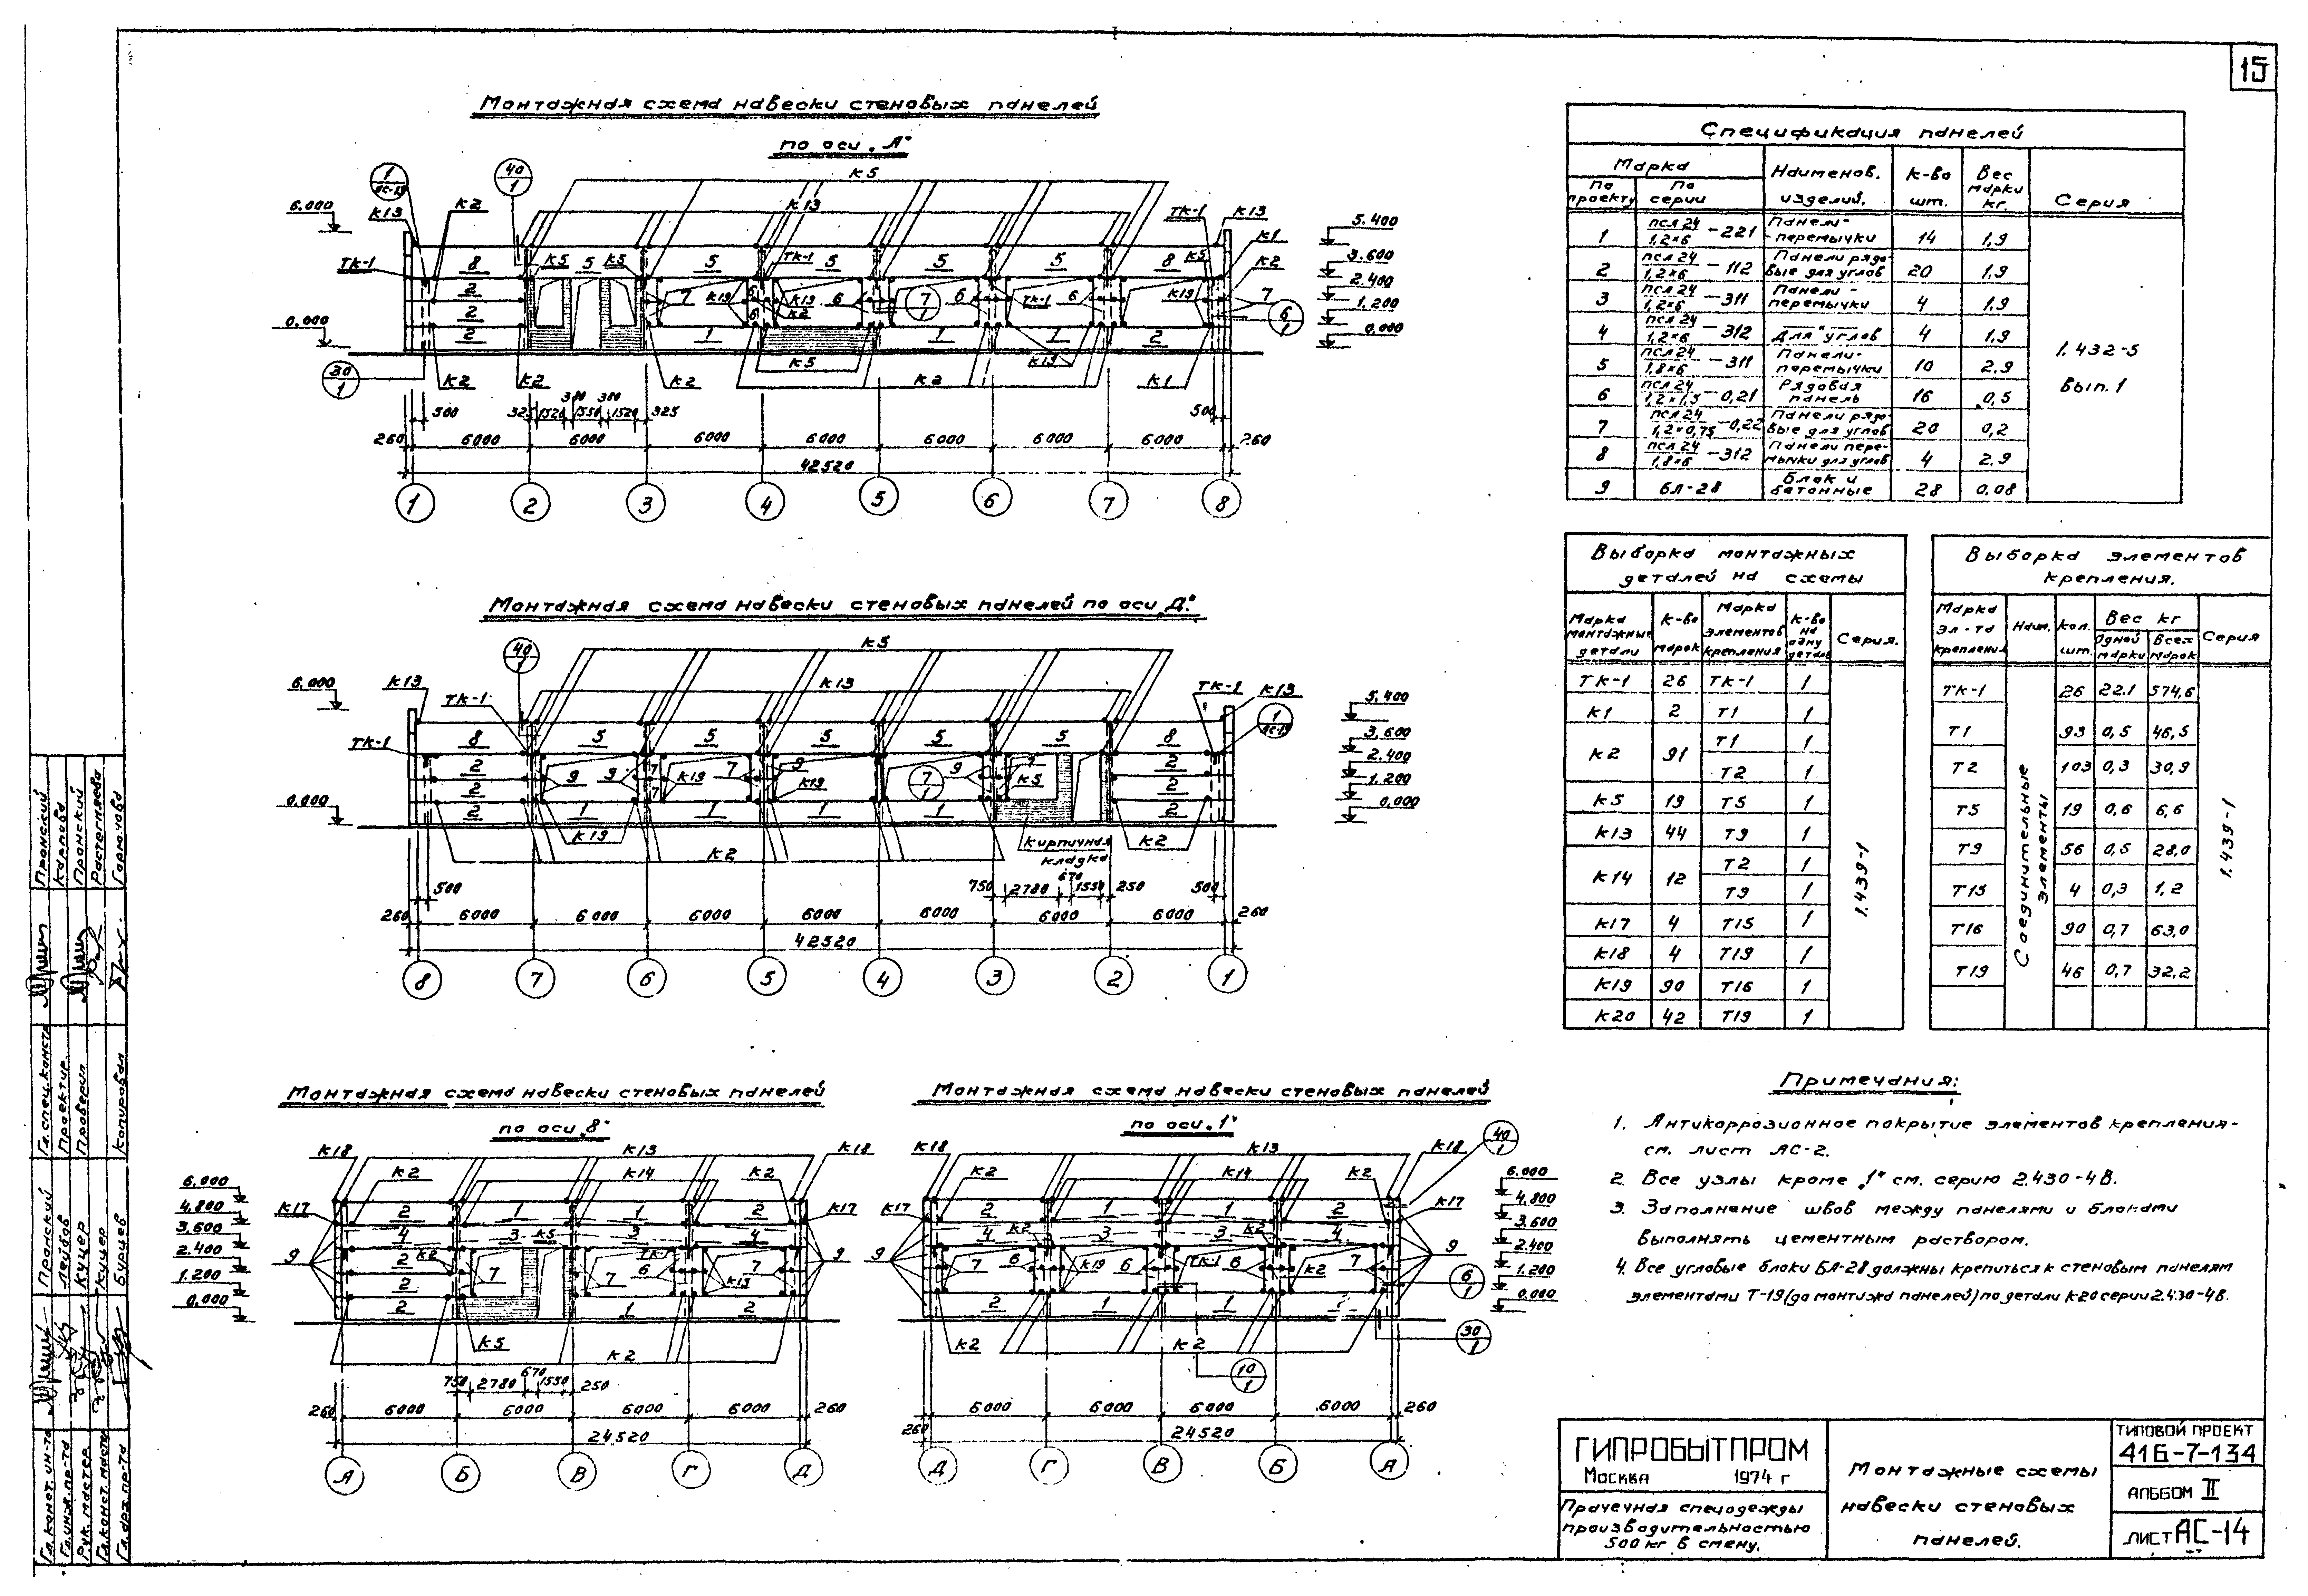 15
Монтажная схема навески стеновых панелей
по оси „А"
1
АС-19
40
1
К5
К13
К2
К13
ТК-1
К13
6.000
5.400
К1
3.600
ТК-1
8
К5
5
К5
5
ТК-1
5
5
5
8
К5
К2
2.400
2
7
К19
6
К19
6
7
1
6
ТК-1
6
К19
7
1.200
2
6
К2
6
1
0.000
2
1
1
1
2
0.000
30
1
К2
К2
К2
К5
К2
К19
К1
500
325
1520
380
1550
380
1520
325
500
260
6000
6000
6000
6000
6000
6000
6000
260
42520
1
2
3
4
5
6
7
8
Монтажная схема навески стеновых панелей по оси „Д".
40
1
К5
6.000
К13
ТК-1
К13
ТК-1
К13
5.400
1
АС-19
ТК-1
8
5
5
5
5
5
8
3.600
2.400
2
9
9
7
К19
7
9
К19
7
1
9
К5
2
1.200
2
7
2
0.000
2
1
1
1
1
2
0.000
К19
К2
Кирпичная
кладка
К2
500
750
2780
670
1550
250
500
260
6000
6000
6000
6000
6000
6000
6000
260
42520
8
7
6
5
4
3
2
1
Монтажная схема навески стеновых панелей
по оси „8"
К18
К13
К18
К2
К14
К2
6.000
4.800
3.600
2.400
1.200
0.000
К17
2
1
1
2
К17
4
3
К5
3
4
9
2
К2
7
7
6
ТК-1
К19
7
9
2
2
1
2
К5
К2
750
2780
670
1550
250
260
6000
6000
6000
6000
260
24520
А
Б
В
Г
Д
Монтажная схема навески стеновых панелей
по оси „1"
К18
К13
40
1
К18
К2
К14
К2
6.000
4.800
3.600
2.400
1.200
0.000
К17
2
1
1
2
К17
4
К2
3
3
К2
4
9
7
6
К19
6
ТК-1
6
К2
7
9
6
1
2
1
1
2
К2
К2
30
1
10
1
6000
6000
6000
6000
260
260
24520
Д
Г
В
Б
А
Спецификация панелей
Марка
По проекту
По серии
Наименов. изделий.
К-во шт.
Вес марки кг.
Серия
1 псл 24 1,2×6 -221 Панели-перемычки 14 1,9
2 псл 24 1,2×6 -112 Панели рядовые для углов 20 1,9
3 псл 24 1,2×6 -311 Панели-перемычки 4 1,9
4 псл 24 1,2×6 -312 Для " углов 4 1,9
5 псл 24 1,8×6 -311 Панели-перемычки 10 2,9
6 псл 24 1,2×1,5 -0,21 Рядовая панель 16 0,5
7 псл 24 1,2×0,75 -0,22 Панели рядовые для углов 20 0,2
8 псл 24 1,8×6 -312 Панели перемычки для углов 4 2,9
9 БЛ-28 Блоки бетонные 28 0,08
1.432-5
Вып. 1
Выборка монтажных
деталей на схемы
Марка монтажные детали
К-во марок
Марка элементов крепления
К-во на одну деталь
Серия.
ТК-1 26 ТК-1 1
К1 2 Т1 1
К2 91 Т1 1
Т2 1
К5 19 Т5 1
К13 44 Т9 1
К14 12 Т2 1
Т9 1
К17 4 Т15 1
К18 4 Т19 1
К19 90 Т16 1
К20 42 Т19 1
1.439-1
Выборка элементов
крепления.
Марка эл-та крепления
Наим.
Кол. шт.
Вес кг
Одной марки
Всех марок
Серия
ТК-1 26 22.1 574,6
Т1 93 0,5 46,5
Т2 103 0,3 30,9
Т5 19 0,6 6,6
Т9 56 0,5 28,0
Т15 4 0,3 1,2
Т16 90 0,7 63,0
Т19 46 0,7 32,2
Соединительные элементы
1.439-1
Примечания:
1. Антикоррозионное покрытие элементов крепления-
см. лист АС-2.
2. Все узлы кроме „1" см. серию 2.430-4В.
3. Заполнение швов между панелями и блоками
выполнять цементным раствором.
4. Все угловые блоки БЛ-28 должны крепиться к стеновым панелям
элементами Т-19 (до монтижа панелей) по детали К-20 серии 2.430-4В.
ГИПРОБЫТПРОМ
Москва 1974 г
Прачечная спецодежды
производительностью
500 кг в смену.
Монтажные схемы
навески стеновых
панелей.
ТИПОВОЙ ПРОЕКТ
416-7-134
АЛЬБОМ II
ЛИСТ АС-14
Гл. конст. ин-та Пронский
Гл. инж. пр-та Лейбов
Рук. мастер. Куцер
Гл. конст. маст. Куцер
Гл. арх. пр-та Бурцев
Гл. спец. конст. Пронский
Проектир. Карпова
Проверил Пронский
Растегняева
Копировал Горюнова